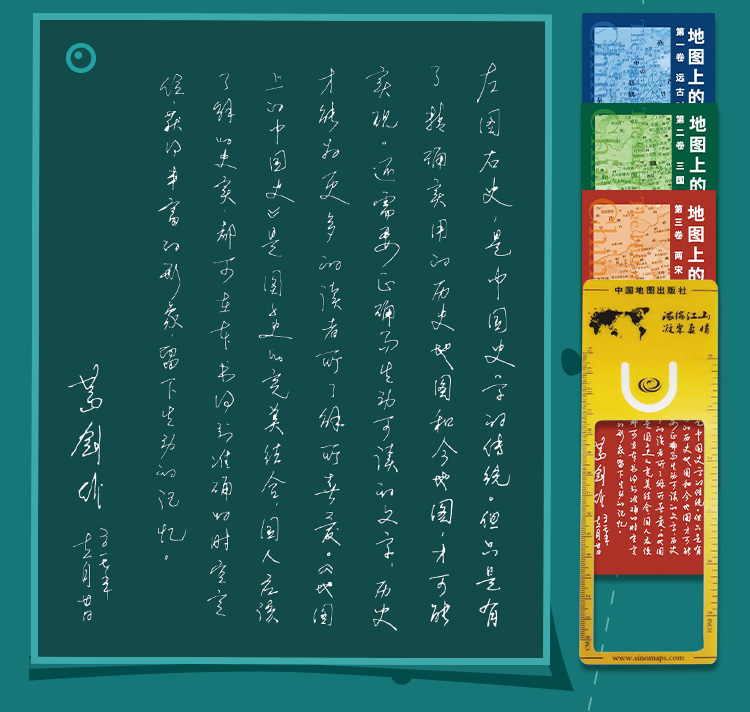 左图右史,是中国史学的传统。但只是有
了精确实用的历史地图和今地图,才可能
实现。还需要正确而生动可读的文字,历史
才能为更多的读者所了解所喜爱。《地图
上的中国史》是图与史的完美结合,国人应该
了解的史实都可在本书得到准确的时空定
位,获得丰富的形象,留下生动的记忆。
葛剑雄
地图上的
第一卷 远古
地图上的
第二卷 三国
地图上的
第三卷 两宋
中国地图出版社
浓缩江山
凝聚真情
www.sinomaps.com